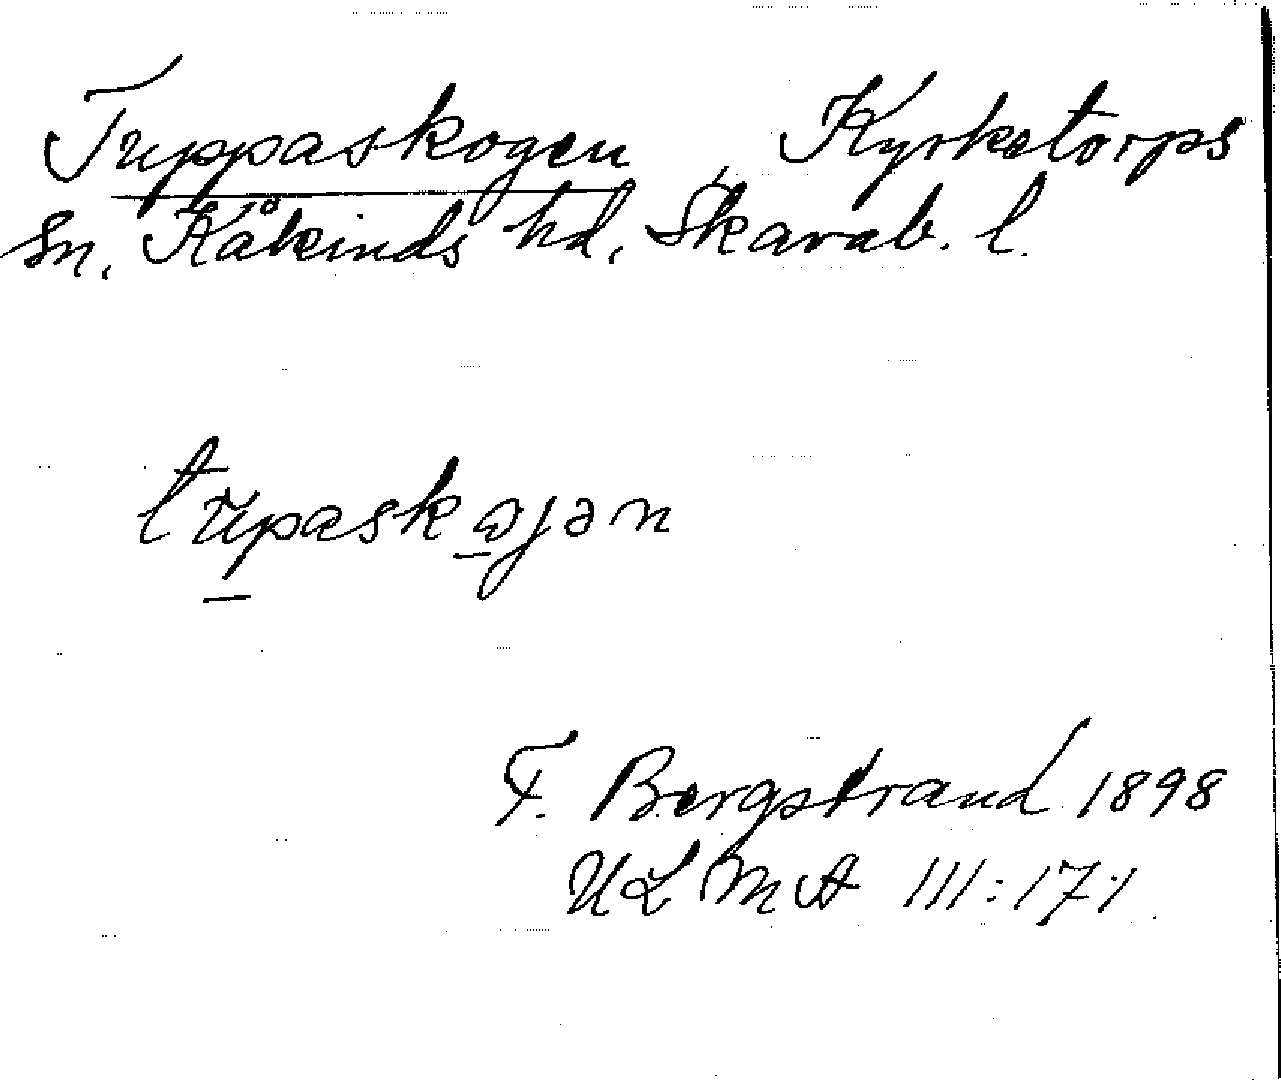 Truppaskogen, Kyrketorps
Sn. Kåkinds hd, Skarab. l.
F. Bergstrand 1898
ULMA III:17:1